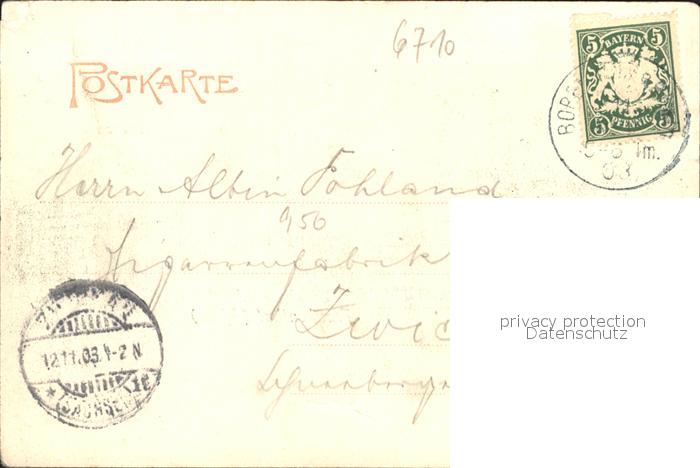 6710
POSTKARTE
5 BAYERN 5
5 PFENNIG 5
03
Herrn Albin Pohland
950
Zigarrenfabrik
Zwic
Schneeberger
12.11.03. 1-2 N
(SACHSEN)
privacy protection
Datenschutz